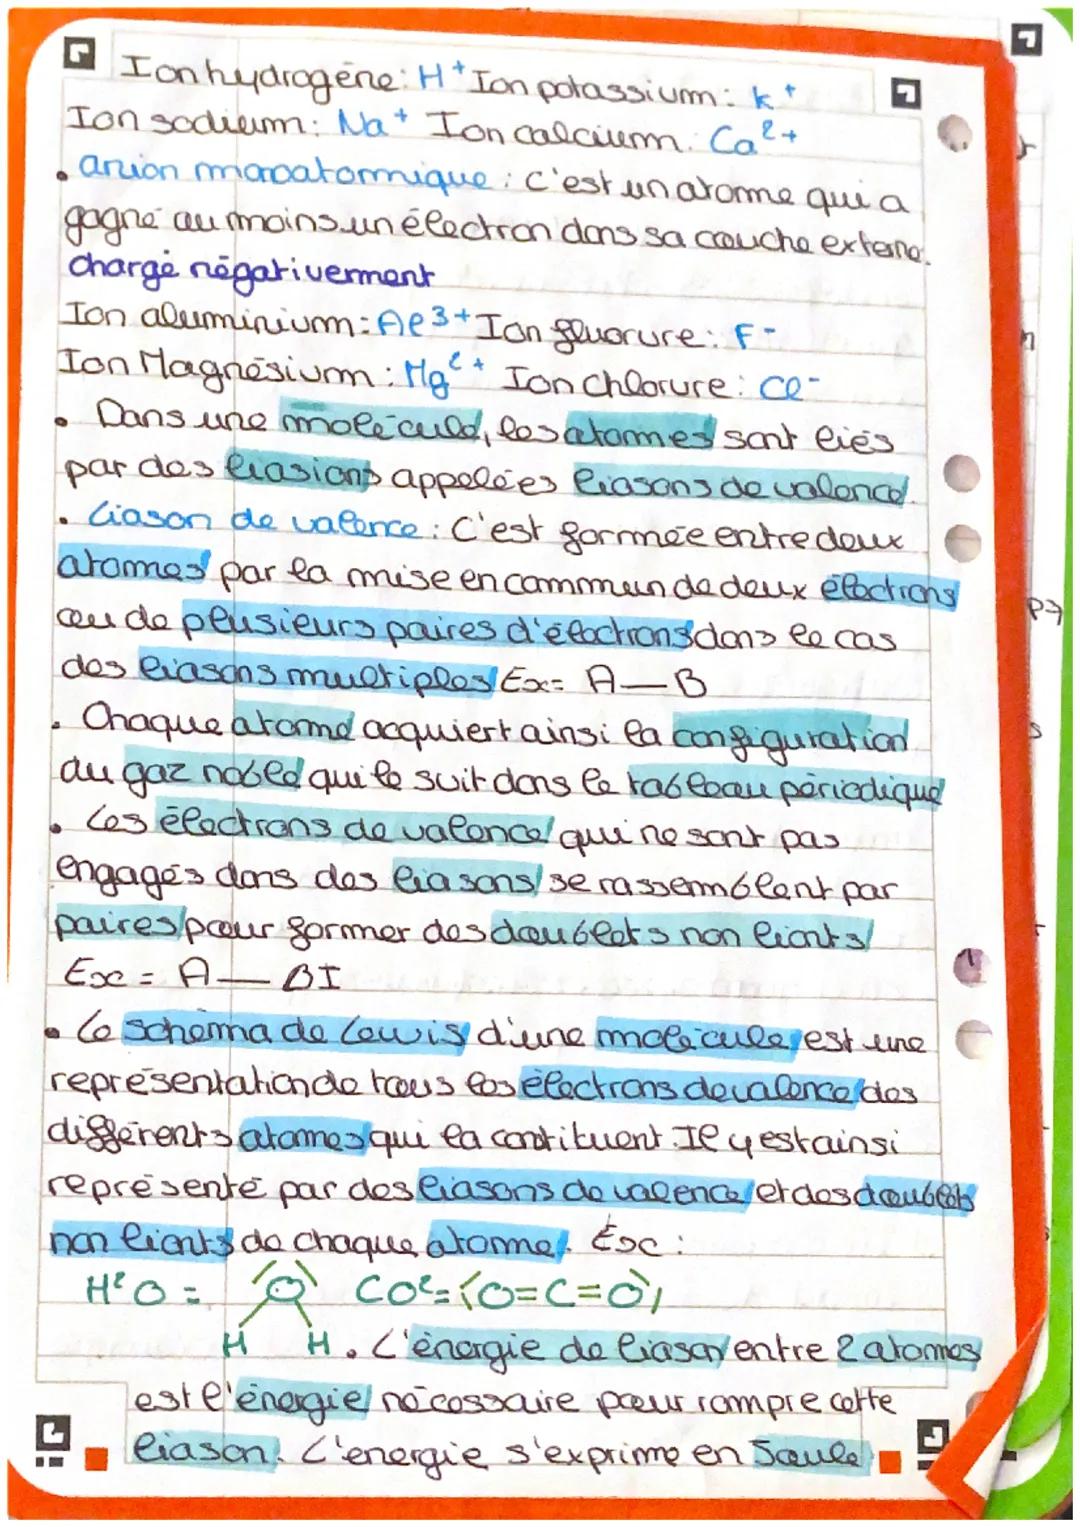 Ion hydrogène: H⁺ Ion potassium: K⁺
Ion sodium: Na⁺ Ion calcium: Ca²⁺
• anion monoatomique: c'est un atome qui a
gagné au moins un électron dans sa couche externe.
chargé négativement
Ion aluminium: Al³⁺ Ion fluorure: F⁻
Ion Magnésium: Mg²⁺ Ion Chlorure: Cl⁻
• Dans une molécule, les atomes sont liés
par des liasions appelées liasons de valence.
• Liason de valence: C'est formée entre deux
atomes par la mise en commun de deux électrons
ou de plusieurs paires d'électrons dans le cas
des liasons multiples Ex= A—B
• Chaque atome acquiert ainsi la configuration
du gaz noble qui le suit dans le tableau périodique
• Les électrons de valence qui ne sont pas
engagés dans des liasons se rassemblent par
paires pour former des doublets non liants
Ex = A — BI
• Le schéma de Lewis d'une molécule est une
représentation de tous les électrons de valence des
différents atomes qui la contituent. Il y est ainsi
représenté par des liasons de valence et des doublets
non liants de chaque atome. Ex:
H²O = O CO²= O=C=O
H H • L'énergie de liason entre 2 atomes
est l'énergie nécessaire pour rompre cette
liason. L'énergie s'exprime en Joule